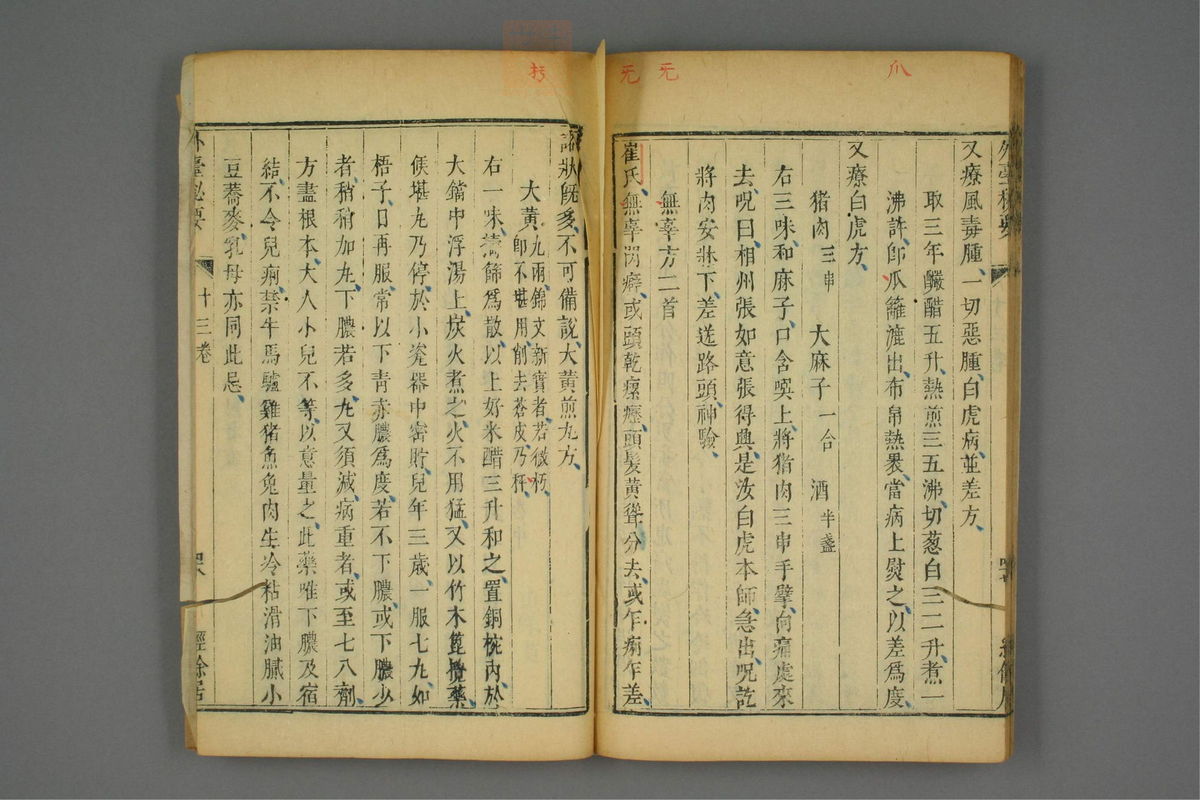 爪
旡
旡
朽
又療風毒腫一切惡腫白虎病並差方
取三年釅醋五升熱煎三五沸切葱白三二升煮一
沸許卽瓜籬漉出布帛熱褁當病上熨之以差爲度
又療白虎方
猪肉三串 大麻子一合 酒半盞
右三味和麻子口含噀上將猪肉三串手擘向痛處來
去呪曰相州張如意張得興是汝白虎本師急出呪訖
將肉安牀下差送路頭神驗
無辜方二首
崔氏無辜閃癖或頭乾瘰癧頭髮黃聳分去或乍痢乍差
諸狀旣多不可備說大黃煎丸方
大黃九兩錦文新實者若微朽
卽不堪用削去蒼皮乃秤
右一味擣篩爲散以上好米醋三升和之置銅椀內於
大鐺中浮湯上炭火煮之火不用猛又以竹木篦攪藥
候堪丸乃停於小瓷器中密貯兒年三歲一服七丸如
梧子日再服常以下靑赤膿爲度若不下膿或下膿少
者稍稍加丸下膿若多丸又須減病重者或至七八劑
方盡根本大人小兒不等以意量之此藥唯下膿及宿
結不令兒痢禁牛馬驢雞猪魚兔肉生冷粘滑油膩小
豆蕎麥乳母亦同此忌
外臺祕要 十三卷 經餘居